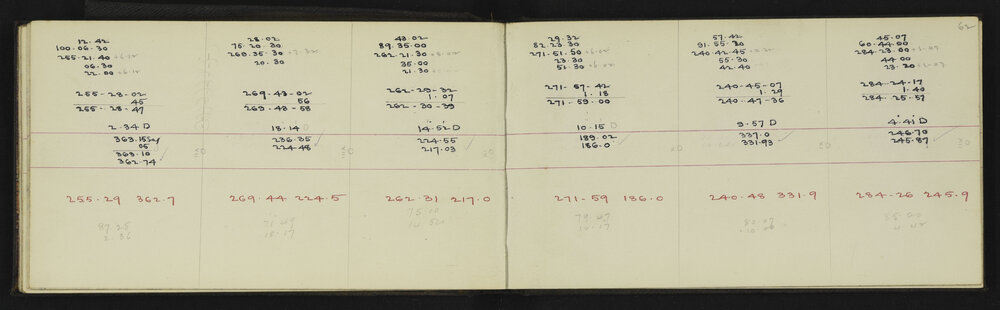 62
12.42
100.06.30
255.21.40
06.30
22.00
255-28-02
45
255-28-47
2.34 D
363.15
05
363.10
362.74
255.29 362.7
87.25
2.36
28.02
75.20.30
269.35.30
20.30
269-43-02
56
269-43-58
18.14 D
236.35
224.48
269.44 224.5
71.49
18.17
43.02
89.35.00
262.21.30
35.00
21.30
262-29-32
1.07
262-30-39
14.52 D
224.55
217.03
262.31 217.0
75.10
14.50
29.32
82.23.30
271.51.50
23.30
51.30
271-57-42
1.18
271-59.00
10.15 D
189.02
186.0
271-59 186.0
79.47
10.17
57.42
91.55.30
240.42.45
55.30
42.40
240-45-07
1.29
240-47-36
9.57 D
337.0
331.93
240.48 331.9
80.07
45.07
60.44.00
284.23.00
44.00
23.20
284-24-17
1.40
284-25-57
4.41 D
246.70
245.87
284-26 245.9
85.20
4.42